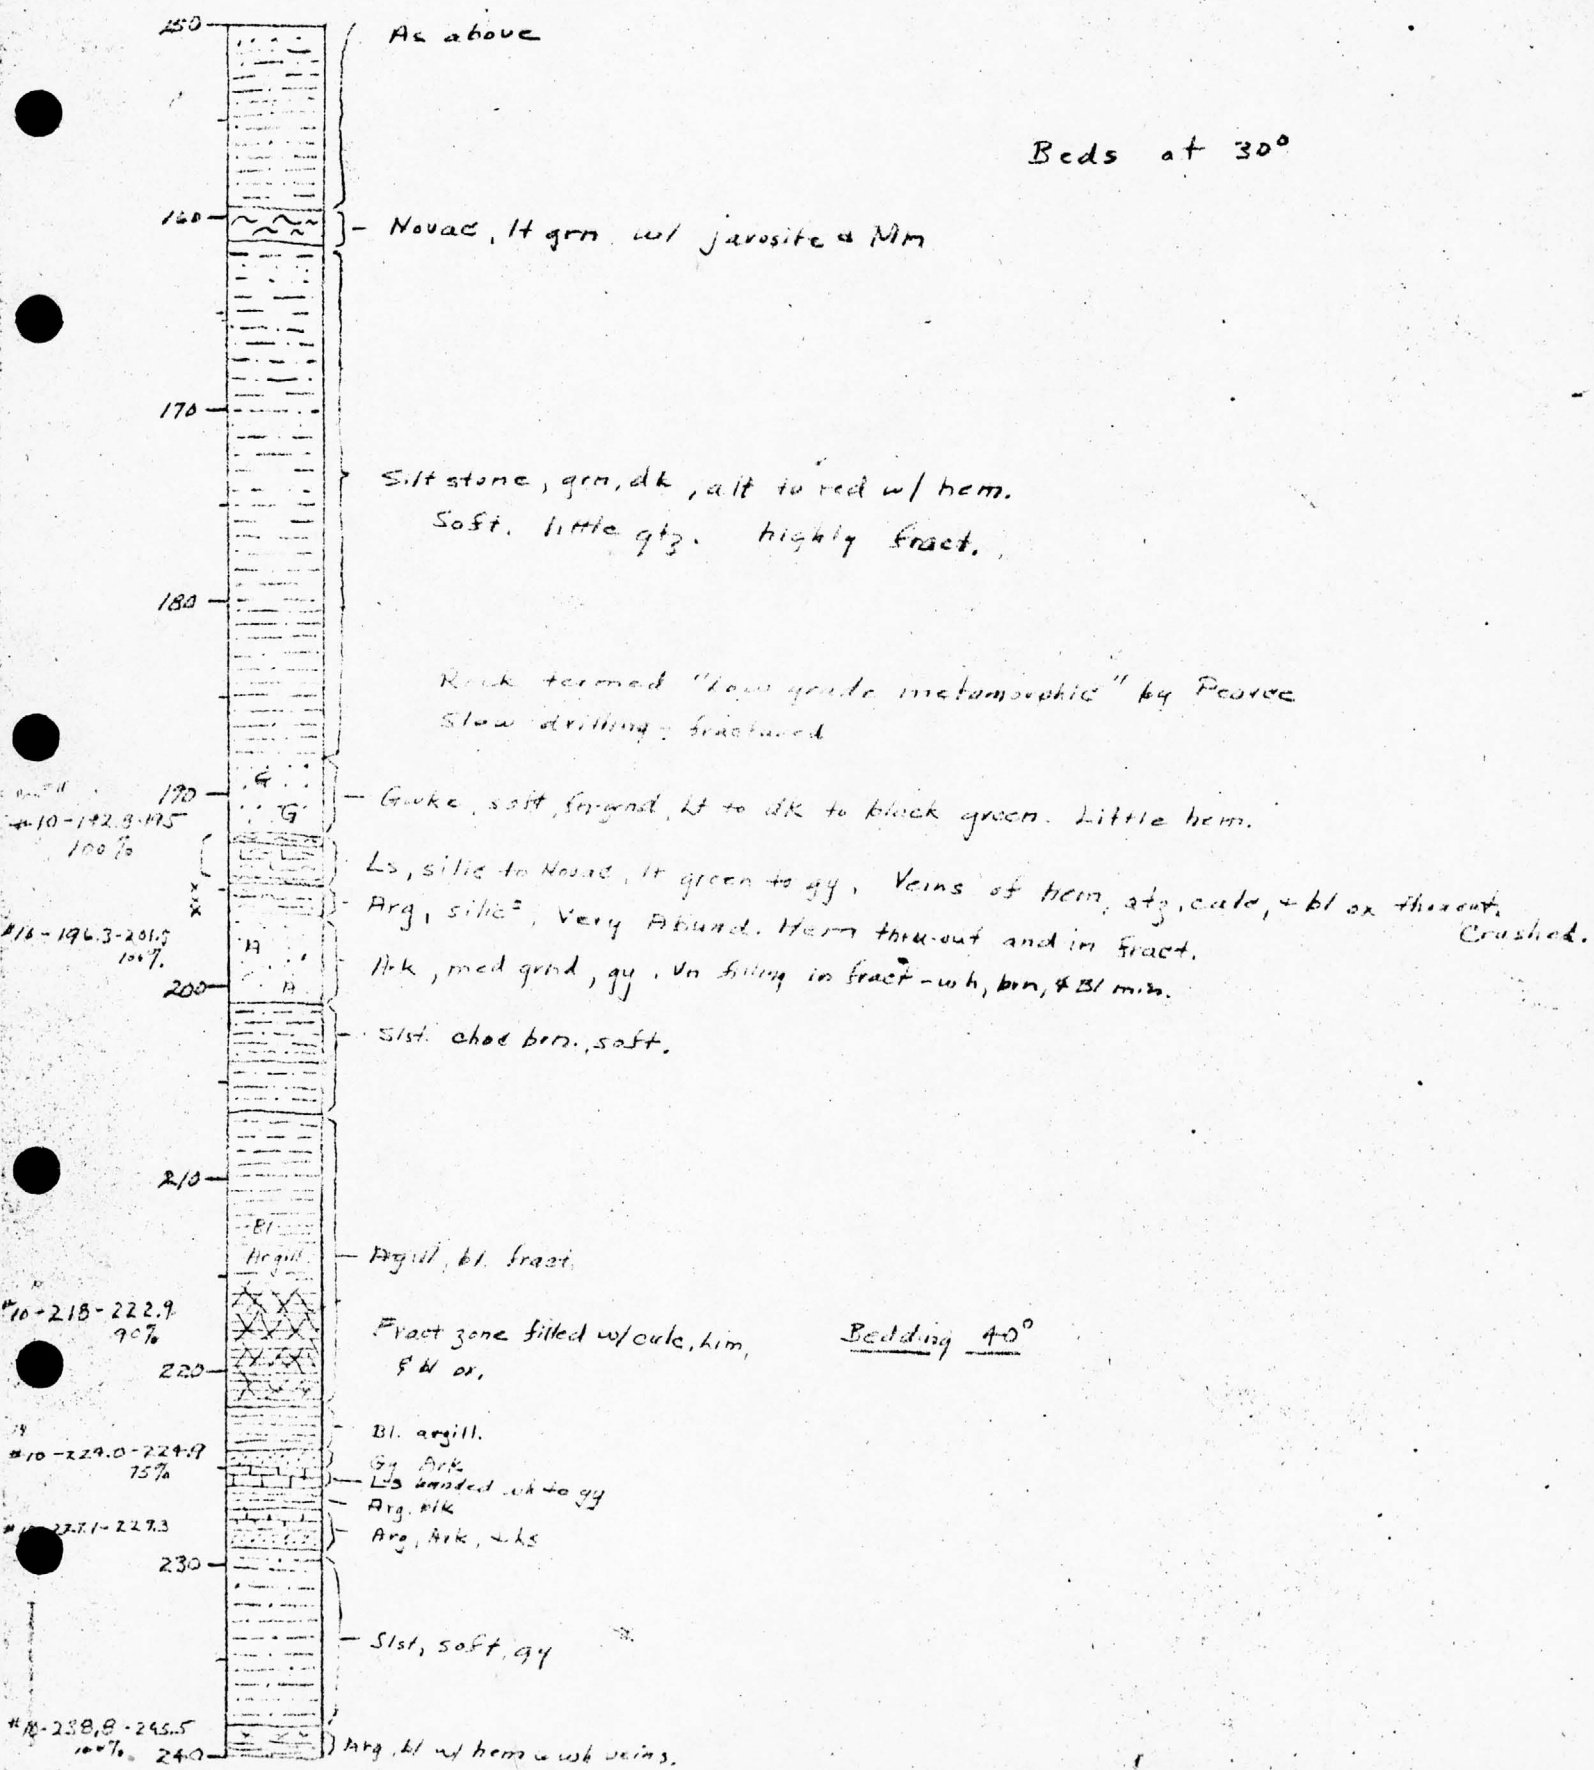 150
As above
Beds at 30°
160
Novac, lt grn w/ jarosite & Mn
170
Siltstone, grn, dk, alt to red w/ hem.
Soft. little qtz. highly fract.
180
Rock termed "low grade metamorphic" by Pearce
Slow drilling - fractured
190
G
G
#10-192.8-195
100%
Gwke, soft, fn-grnd, Lt to dk to black green. Little hem.
Ls, silic to Novac, lt green to gy. Veins of hem, qtz, calc, + bl ox thruout.
Crushed.
xxx
Arg, silic, Very Abund. Hem thru-out and in fract.
#10-196.3-201.5
100%
A
A
Ark, med grnd, gy. Vn filling in fract - wh, brn, & Bl min.
200
Slst. choc brn., soft.
210
Bl
Argill
Agill, bl. fract.
#10-218-222.9
90%
Fract zone filled w/ calc, Lim,
& bl ox.
Bedding 40°
220
Bl. argill.
#10-224.0-224.9
75%
Gy Ark
Ls banded wh to gy
Arg. blk
227.1-229.3
Arg, Ark, + Ls
230
Slst, soft, gy
#10-238.8-245.5
100%
240
Arg, bl w/ hem & wh veins.